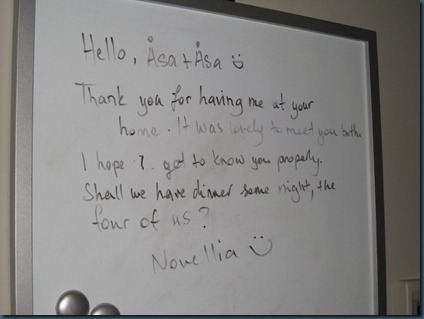 Hello, Åsa + Åsa
Thank you for having me at your
home. It was lovely to meet you both.
I hope I get to know you properly.
Shall we have dinner some night, the
four of us?
Novellia